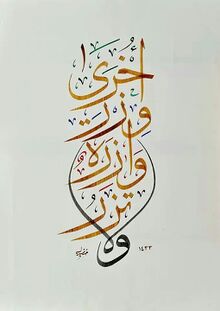 ولا تزر
وازرة
وزر
أخرى
١٤٣٣